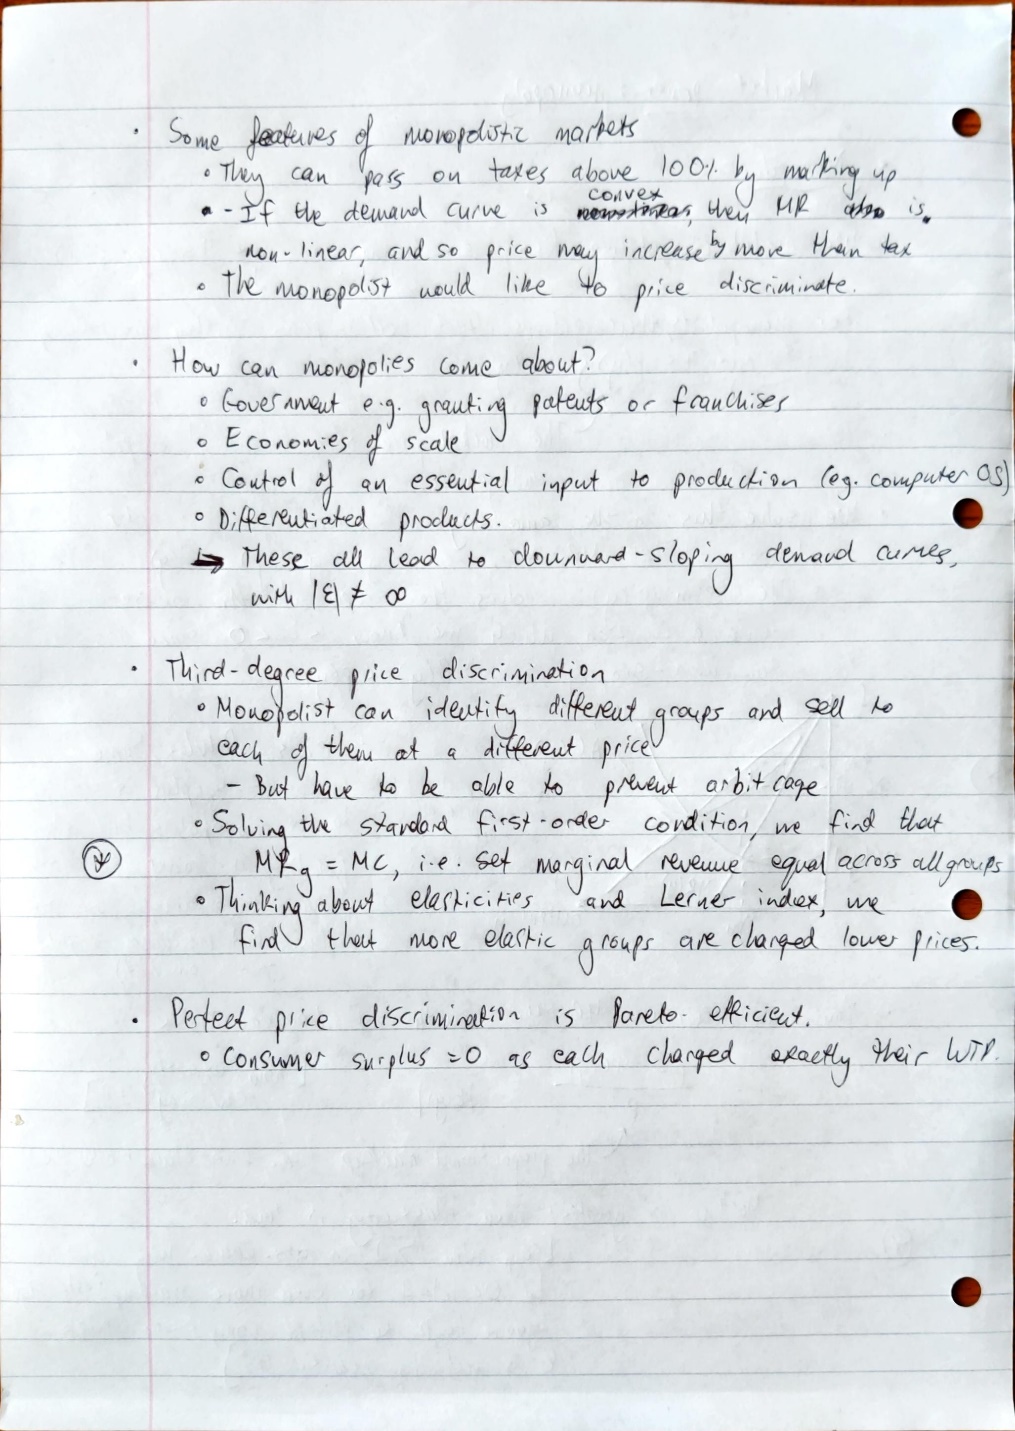 · Some features of monopolistic markets
∘ They can pass on taxes above 100% by marking up
- If the demand curve is convex, then MR is
non-linear, and so price may increase by more than tax
∘ The monopolist would like to price discriminate.
· How can monopolies come about?
∘ Government e.g. granting patents or franchises
∘ Economies of scale
∘ Control of an essential input to production (eg. computer OS)
∘ Differentiated products.
↳ These all lead to downward-sloping demand curves,
with |ε| ≠ ∞
· Third-degree price discrimination
∘ Monopolist can identify different groups and sell to
each of them at a different price
- But have to be able to prevent arbitrage
∘ Solving the standard first-order condition, we find that
MRg = MC, i.e. set marginal revenue equal across all groups
∘ Thinking about elasticities and Lerner index, we
find that more elastic groups are charged lower prices.
· Perfect price discrimination is Pareto-efficient.
∘ Consumer surplus = 0 as each charged exactly their WTP.